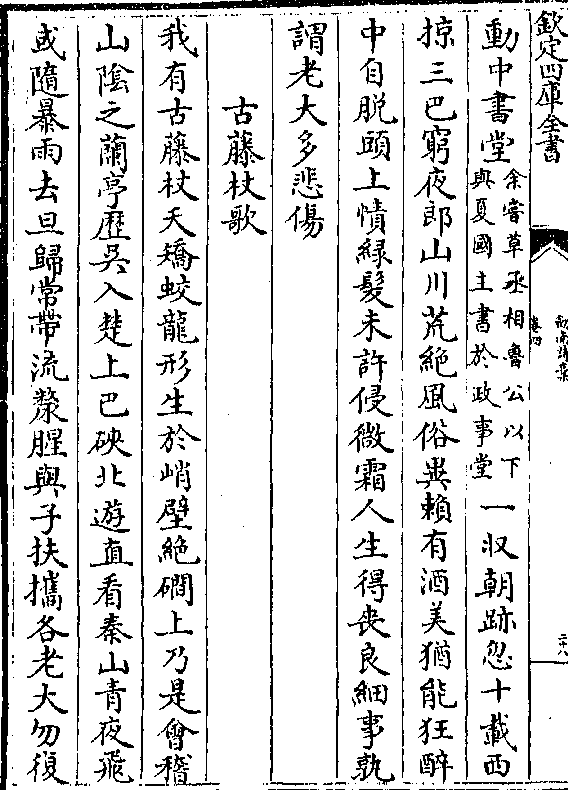 欽定四庫全書
劍南詩稾
卷四
動中書堂余嘗草丞相魯公以下與夏國主書於政事堂一收朝跡忽十載西
掠三巴窮夜郎山川荒絕風俗異賴有酒美猶能狂醉
中自脫頭上幘綠髮未許侵微霜人生得喪良細事孰
謂老大多悲傷
古藤杖歌
我有古藤杖夭矯蛟龍形生於峭壁絕磵上乃是會稽
山陰之蘭亭歷吳入楚上巴硤北遊直看秦山青夜飛
或隨暴雨去旦歸常帶流漦腥與子扶攜各老大勿復